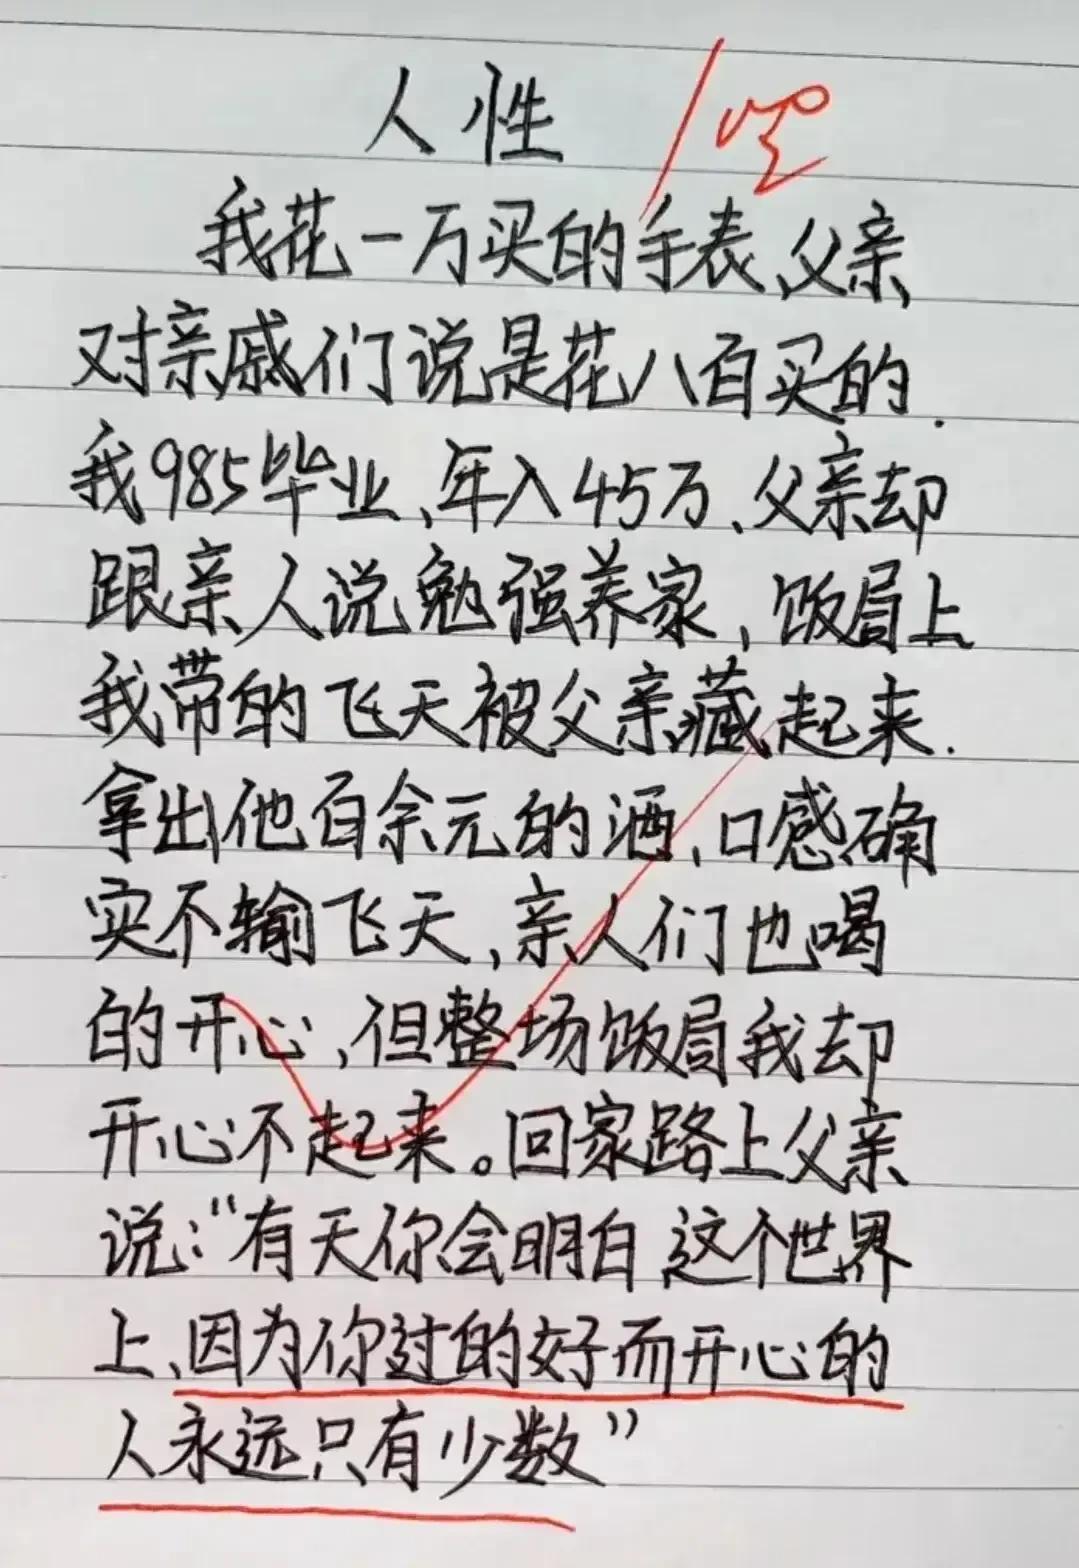 人性
我花一万买的手表、父亲
对亲戚们说是花八百买的.
我985毕业、年入45万、父亲却
跟亲人说勉强养家,饭局上
我带的飞天被父亲藏起来.
拿出他百余元的酒、口感确
实不输飞天,亲人们也喝
的开心,但整场饭局我却
开心不起来。回家路上父亲
说:“有天你会明白这个世界
上、因为你过的好而开心的
人永远只有少数”